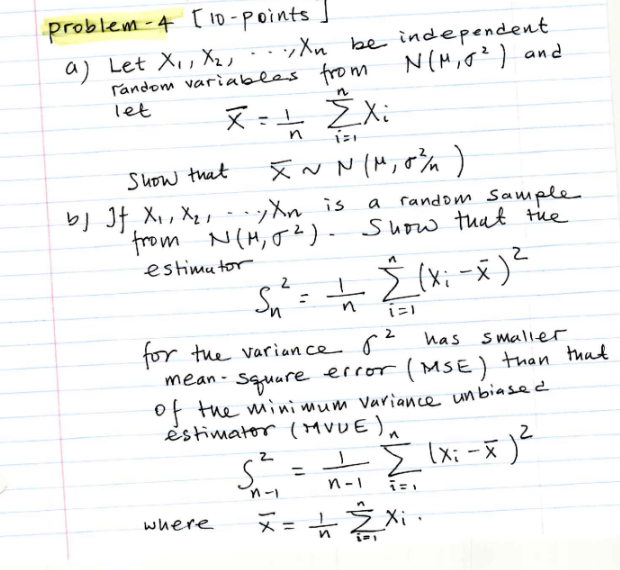 problem-4 [10-points]
a) Let X₁, X₂, ...., Xn be independent
random variables from N(μ, σ²) and
let
X̅ = 1/n Σ_{i=1}^{n} Xi
Show that X̅ ~ N(μ, σ²/n)
b) If X₁, X₂, ...., Xn is a random sample
from N(μ, σ²). Show that the
estimator
Sn² = 1/n Σ_{i=1}^{n} (Xi - x̄)²
for the variance σ² has smaller
mean-square error (MSE) than that
of the minimum variance unbiased
estimator (MVUE)
S²_{n-1} = 1/(n-1) Σ_{i=1}^{n} (Xi - x̄)²
where x̄ = 1/n Σ_{i=1}^{n} Xi.